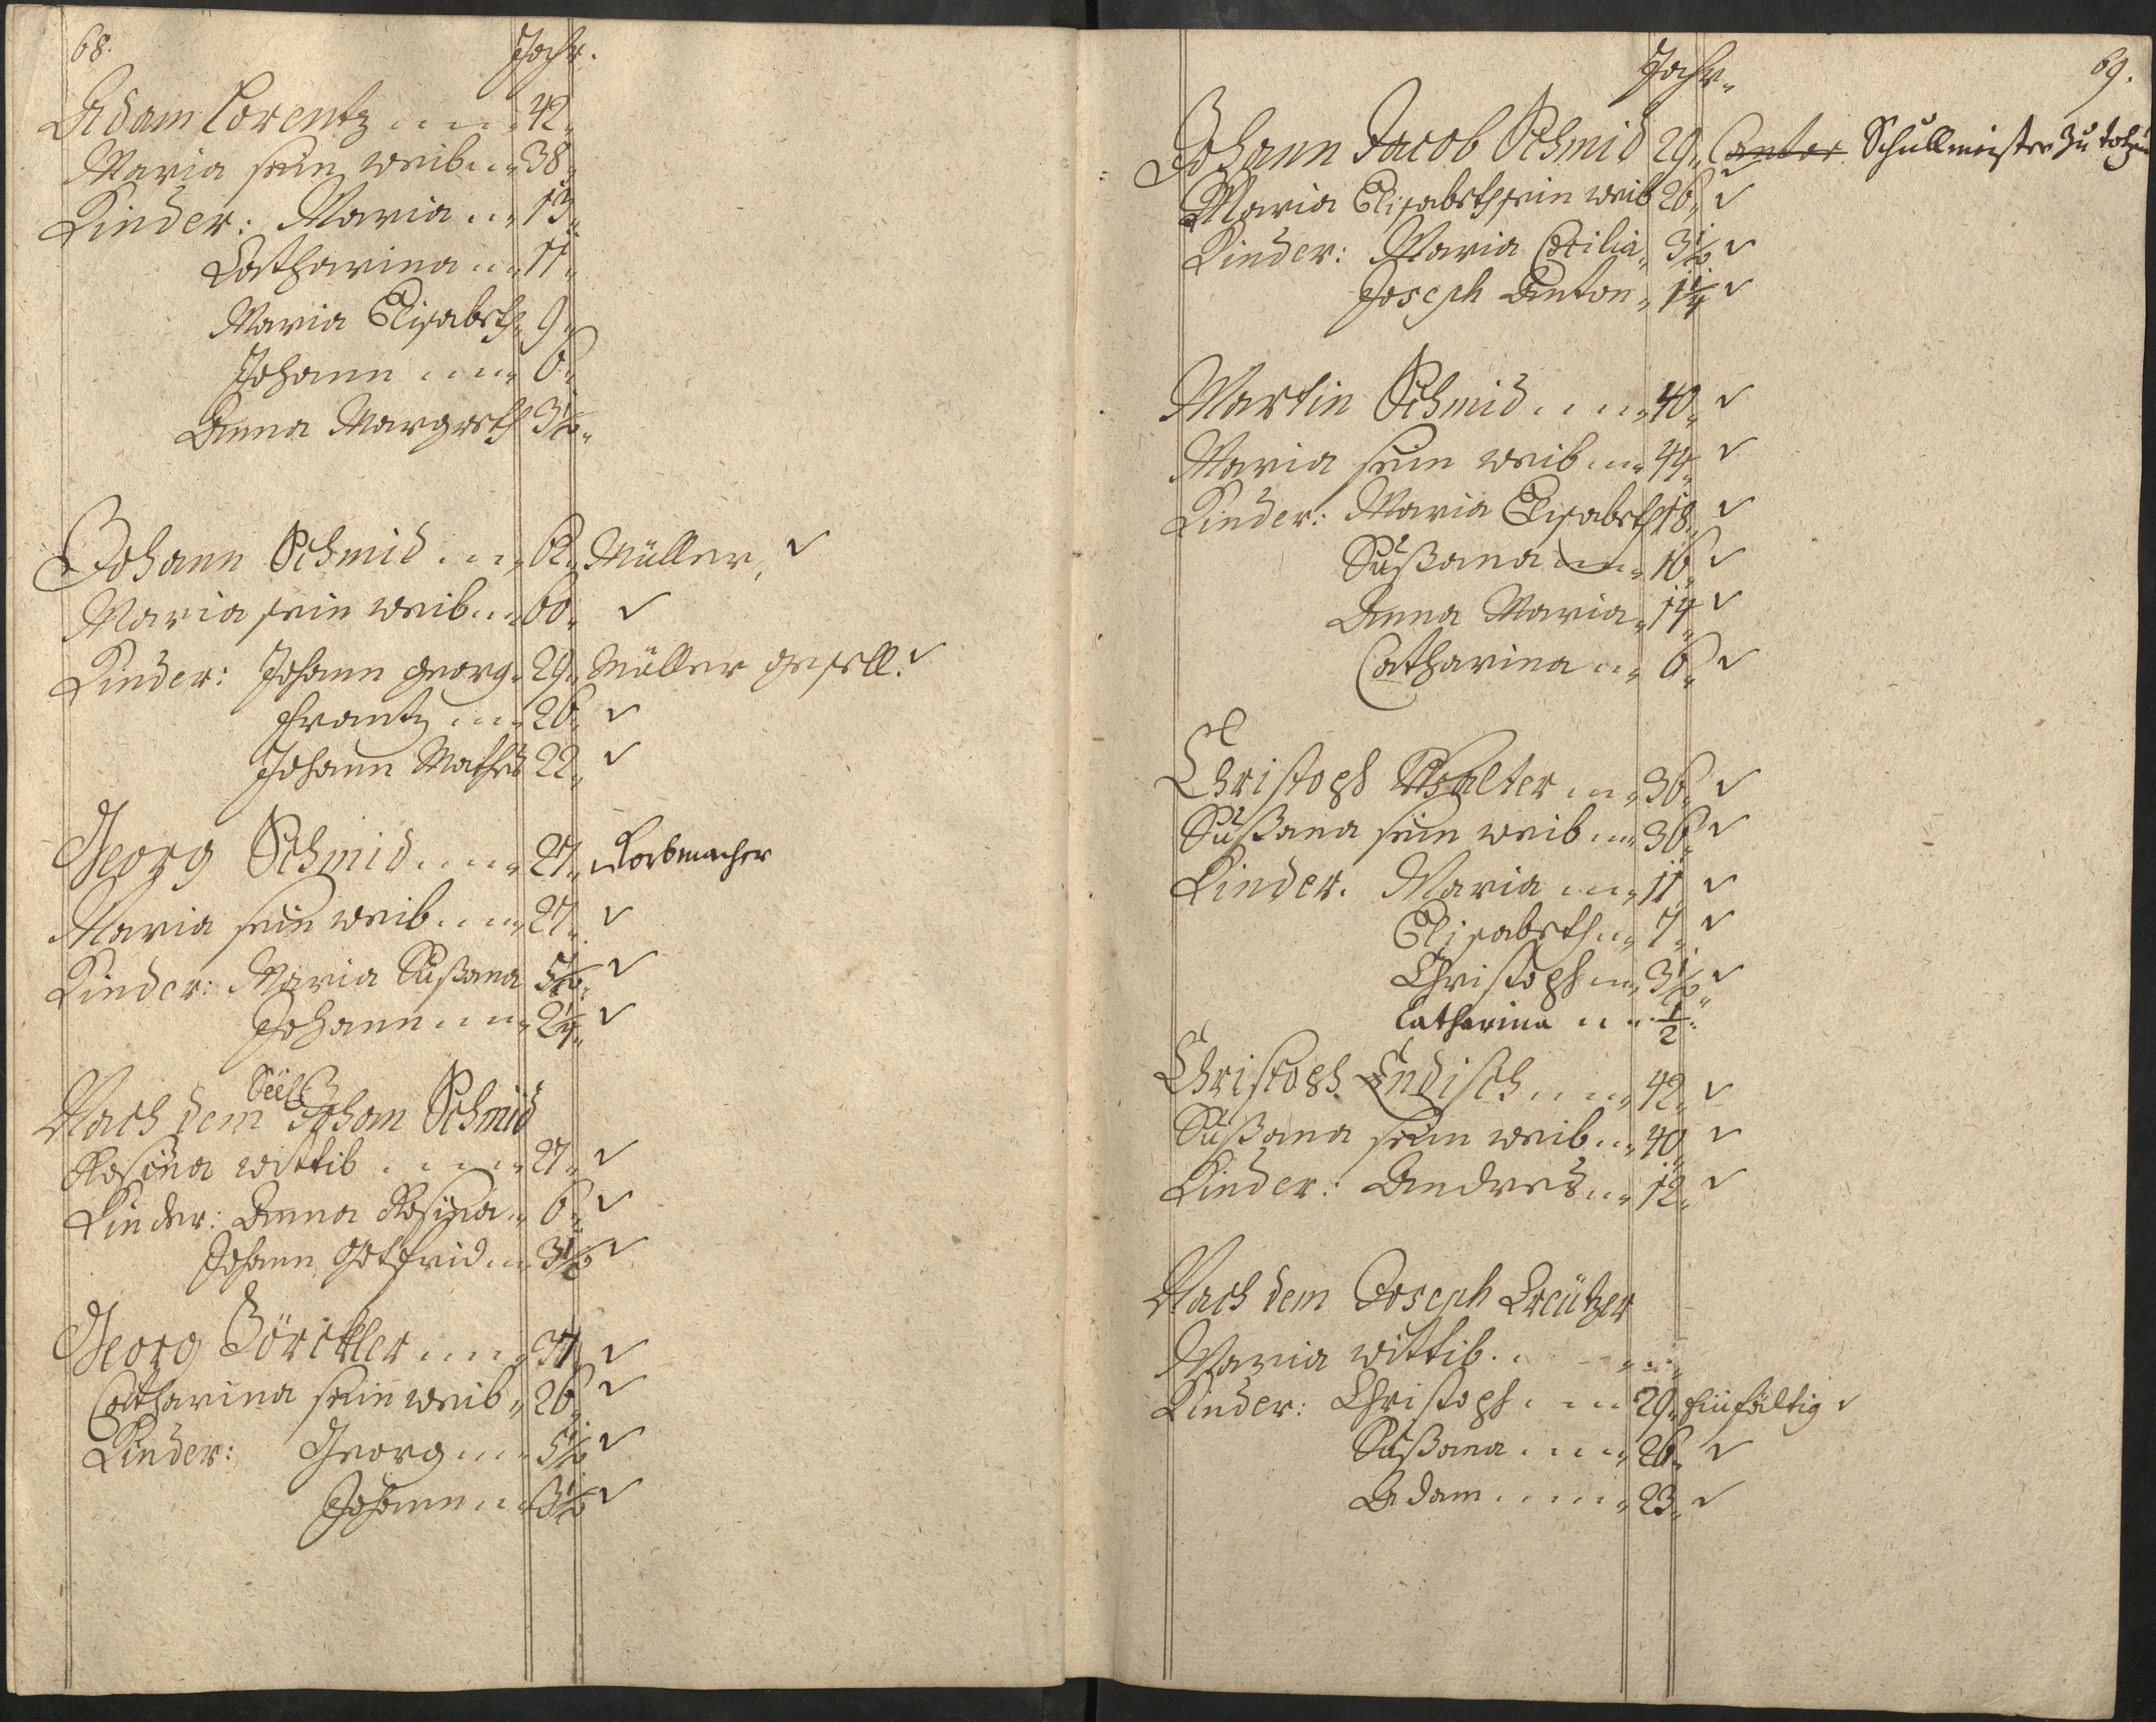 68.
Jahr.
Adam Lorentz 42.
Maria sein weib 38.
Kinder: Maria 13.
Catharina 11.
Maria Elisabeth 9.
Johann 6.
Anna Margreth 3½.
Johann Schmid 62. Müller, ✓
Maria sein weib 60. ✓
Kinder: Johann Georg 29. Müller gesell. ✓
Frantz 26. ✓
Johann Mathes 22. ✓
Georg Schmid 27. Korbmacher
Maria sein weib 27. ✓
Kinder: Maria Sußana 5½. ✓
Johann 2¼. ✓
Nach dem Seel: Johan Schmid
Rosina wittib 27. ✓
Kinder: Anna Rosina 6. ✓
Johann Gotfrid 3½ ✓
Georg Börckler 37. ✓
Catharina sein weib 26. ✓
Kinder: Georg 5½ ✓
Johann 3½ ✓
69.
Jahr.
Johann Jacob Schmid 29. Cantor Schullmeister zu
Maria Elisabeth sein weib 26. ✓
Kinder: Maria Cecilia 3½ ✓
Joseph Anton 1¼ ✓
Martin Schmid 40. ✓
Maria sein weib 44. ✓
Kinder: Maria Elisabeth 18. ✓
Sußana 16. ✓
Anna Maria 14. ✓
Catharina 6. ✓
Christoph Walter 36. ✓
Sußana sein weib 36. ✓
Kinder. Maria 11. ✓
Elisabeth 7. ✓
Christoph 3½. ✓
Catharina ½.
Christoph Endisch 42. ✓
Sußana sein weib 40. ✓
Kinder: Andres 12. ✓
Nach dem Joseph Creützer
Maria wittib.
Kinder: Christoph 29. Einfältig ✓
Sußana 26. ✓
Adam 23. ✓